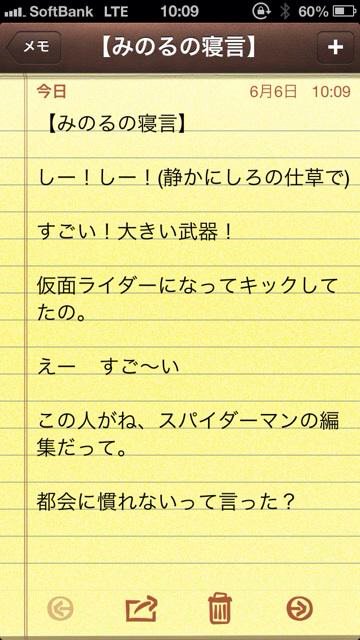 SoftBank LTE 10:09 60%
メモ 【みのるの寝言】 +
今日 6月6日 10:09
【みのるの寝言】
しー！しー！(静かにしろの仕草で)
すごい！大きい武器！
仮面ライダーになってキックして
たの。
えー　すご〜い
この人がね、スパイダーマンの編
集だって。
都会に慣れないって言った？